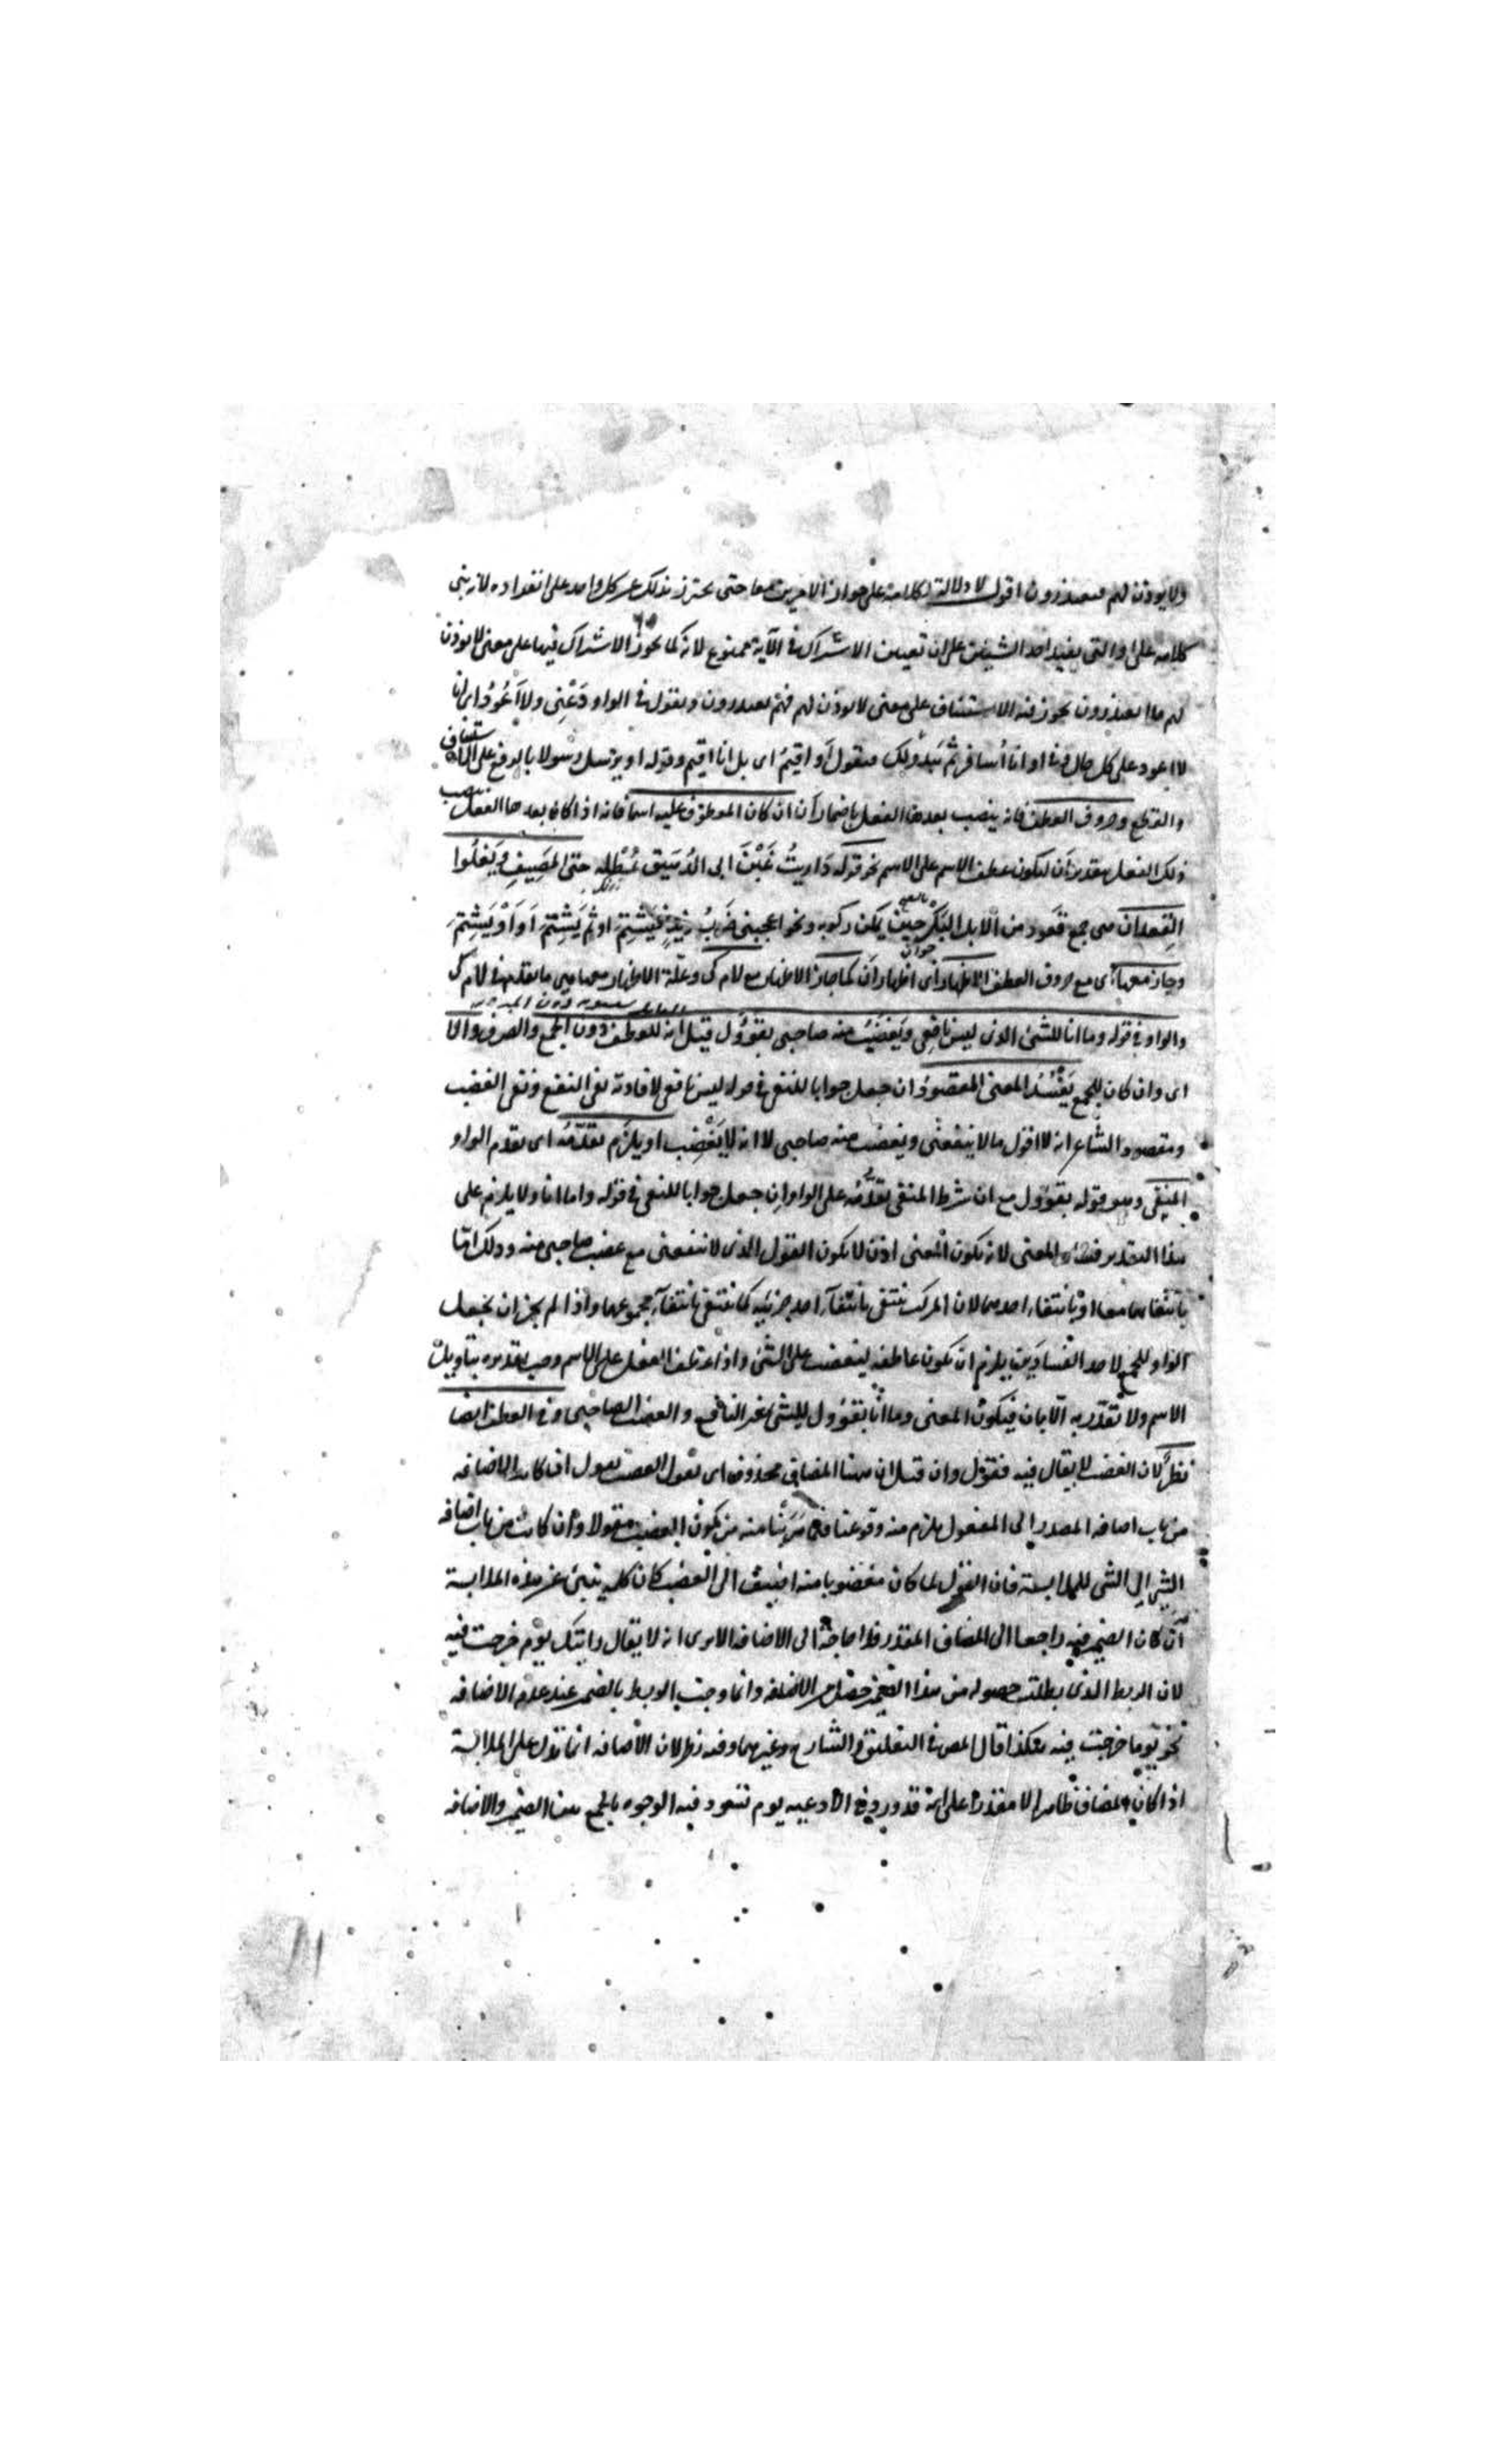 ولا يؤذن لهم فيعتذرون اقول لا دلالة لكلامه على جواز الامرين معا حتى يحترز بذلك عن كل واحد على انفراده لانه بنى
كلامه على او التى يفيد احد الشيئين على ان تعيين الاشتراك فى الآية ممنوع لانه كما يجوز الاشتراك فيها على معنى لا يؤذن
لهم فما يعتذرون يجوز فيه الاستئناف على معنى لا يؤذن لهم فهم يعتذرون وتقول فى الواو دَعْنِى ولا اَعُودُ اى انا
لا اعود على كل حال وفى او انا أسافر ثم يبدو لك فتقول أو اقيمُ اى بل انا اقيم وقوله او يرسل رسولا بالرفع على الاستيناف
والقطع وحروف العطف فانه ينصب بعدها الفعل باضمار أن ان كان المعطوف عليه اسما فانه اذا كان بعدها الفعل ينصب
ذلك الفعل بتقدير أن ليكون عطف الاسم على الاسم نحو قوله داويتُ عَيْنَ ابى الدُهَيق بمَطْلِه حتى المَصِيفِ ويَغْلُوا
القِعدان هى جمع قَعود من الابل البَكر حين يمكن ركوبه ونحو اعجبنى ضَرْبُ زيدٍ فيَشْتِمَ او ثم يَشْتِمَ اَو اَوْ يَشْتِمَ
وجاز معها اى مع حروف العطف الاظهار اى اظهار أن كما جاز الاظهار مع لام كى وعلة الاظهار معها هى ما تقدم فى لام كى
والواو فى قوله وما انا للشئ الذى ليس نافعى ويَغضَبُ منه صاحبى بقؤول قيل انه للعطف دون الجمع والصرف والا
اى وان كان للجمع يَفْسُدُ المعنى المقصود ان جعل جوابا للنفى فى قوله ليس نافعى لافادته نفى النفع ونفى الغضب
ومقصود الشاعر انه لا اقول ما لا ينفعنى ويغضب منه صاحبى لا انه لا يَغْضِب او يلزم تقدّمُه اى تقدم الواو
المنفى وهو قوله بقؤول مع ان شرط المنفى تقدّمُه على الواو ان جعل جوابا للنفى فى قوله وما انا ولا يلزم على
هذا التقدير فساد المعنى لانه يكون المعنى اذن لا يكون القول الذى لا ينفعنى مع غضب صاحبى منه وذلك امّا
بانتفائهما معا او بانتفاء احدهما لان المركب ينتفى بانتفآء احد جزئيه كما ينتفى بانتفآء مجموعهما واذا لم يجز ان يجعل
الواو للجمع لاحد الفسادَين يلزم ان يكون عاطفه ليغضب على الشئ واذا عطف الفعل على الاسم وجب تقديره بتأويل
الاسم ولا تقدّر به الا بان فيكون المعنى وما انا بقؤول للشئ غير النافع والغضب لصاحبى وفى العطف ايضا
نظرٌ لان الغضب لا يقال فيه فقؤل وان قيل ان ههنا المضاف محذوف اى بقول الغضب نقول ان كانت الاضافه
من باب اضافة المصدر الى المفعول يلزم منه وقوعنا فيما هَرَبْنا منه من كون الغضب مقولا وان كانت من باب اضافه
الشئ الى الشئ للملابسة فان القول لما كان مغضوبا منه اضيف الى الغضب كان كلمة ينبئ عن هذه الملابسة
ان كان الضمير فيه راجعا الى المضاف المقدر فلا حاجة الى الاضافه الا يرى انه لا يقال رايتك يوم خرجت فيه
لان الربط الذى يطلب حصوله من هذا الضمير حصل من الاضافه وانما وجب الربط بالضمير عند عدم الاضافه
نحو يوما خرجت فيه هكذا قال المص فى التعليق والشارح وغيرهما وفيه نظر لان الاضافه انما تدل على الملابسة
اذا كان المضاف ظاهرا لا مقدرا على انه قد ورد فى الادعيه يوم تسود فيه الوجوه بالجمع بين الضمير والاضافه